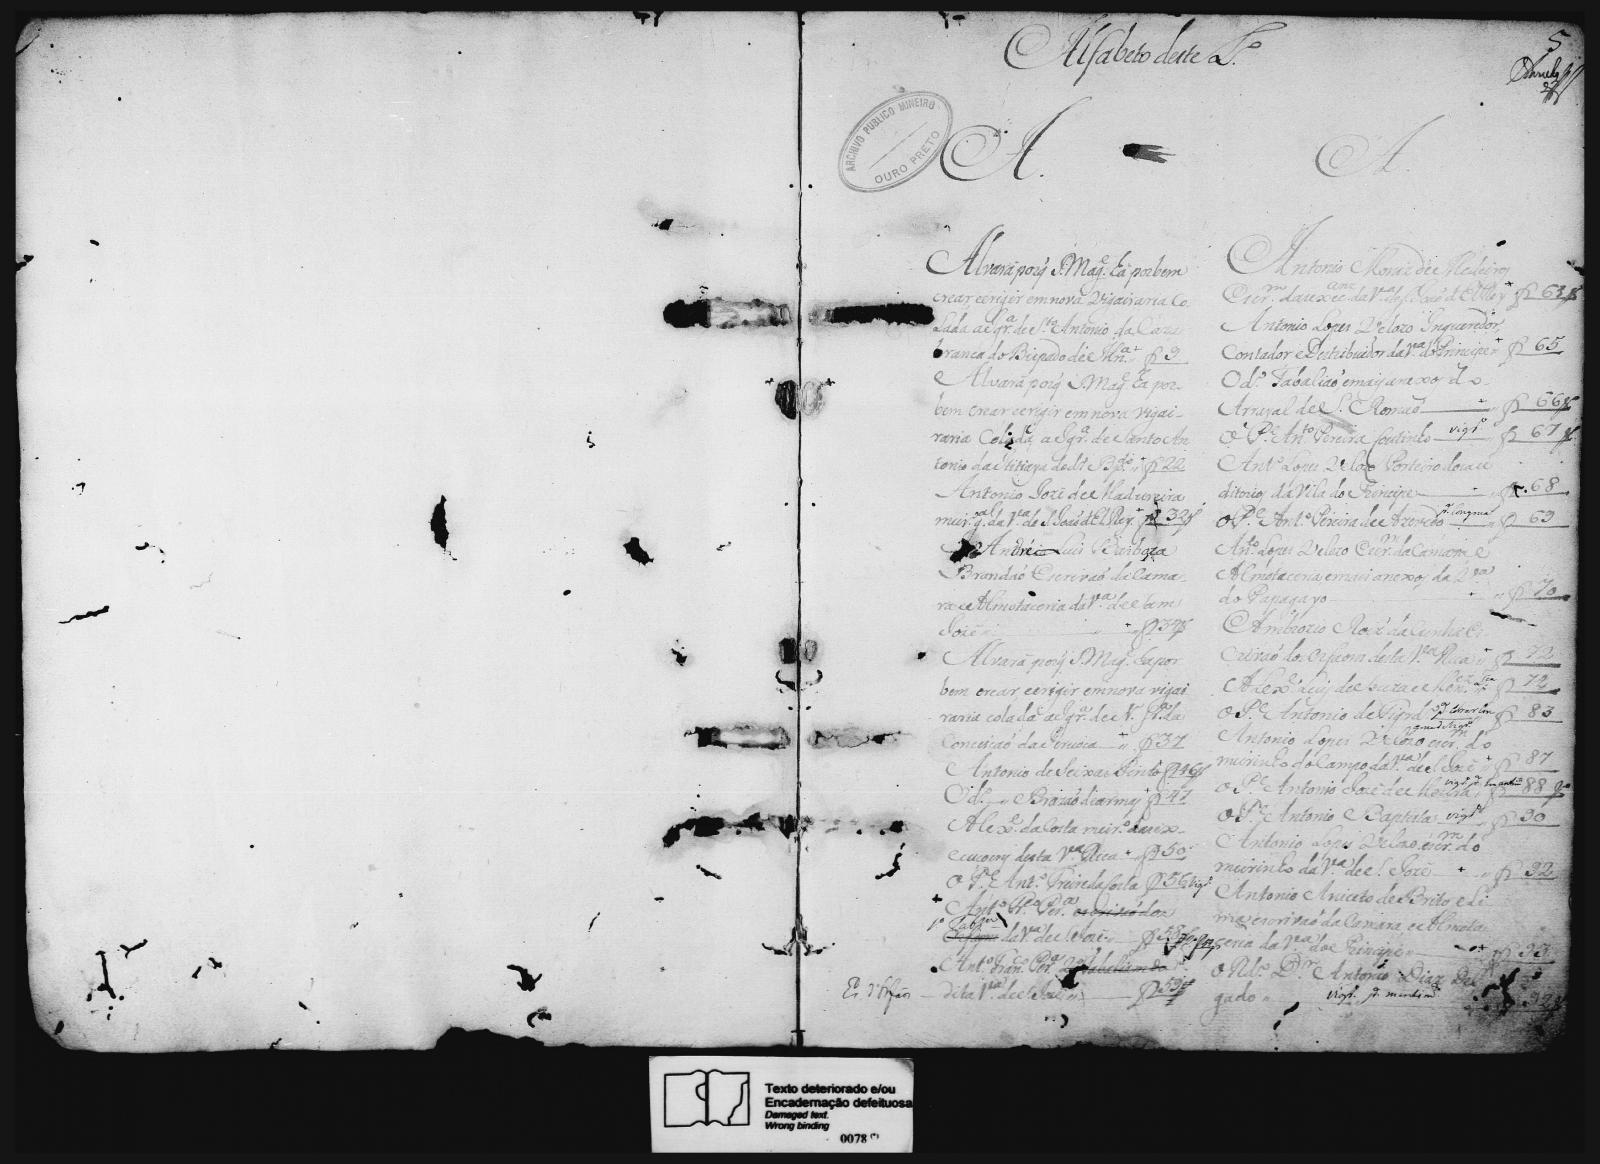 Alfabeto deste L.º
5
ARCHIVO PUBLICO MINEIRO
OURO PRETO
A.
Alvará porq̃ S. Mag.e Ha por bem
crear e erigir em nova Vigairaria Co
lada a Igr.a de S.to Antonio da Caza
branca do Bispado de M.na " f 9
Alvará porq̃ S. Mag.e Ha por
bem crear e erigir em nova vigai
raria Colada a Igr.a de Santo An
tonio da Ititiaya do d.o Bp.do " f 22
Antonio Jozé de Madureira
meir.o g.al da V.a de S. João d'El Rey f 32
André Luis Barboza
Brandaõ Escrivaõ da Cama
ra e Almotaceria da V.a de Sam
Jozé " f 34
Alvará porq̃ S. Mag.e ha por
bem crear e erigir em nova vigai
raria colada a Igr.a de N. Sr.a da
Conceiçaõ da " f 37
Antonio de Seixas Pinto f 46
O d.o " Brazaõ de armas f 47
Alex.e da Costa meir.o da ex
ecuçoens desta V.a Rica f 50
O P.e Ant.o Freire da Costa f 56 vigr.o
Ant.o Fr.co Per.a escrivaõ dos
da V.a de S. Jozé " f 58
Ant.o Fran.co Per.a
Es. d'Orfãos dita V.a de S. Jozé " f 59
A.
Antonio Moniz de Medeiros
Escr.m da exec. da V.a de S. João d'El Rey f 63
Antonio Lopes Velozo Inqueredor,
Contador e Destribuidor da V.a do Principe f 65
O d.o Tabaliaõ e mais anexos do
Arrayal de S. Romaõ f 66
O P.e An.to Pereira Coutinho vigr.o f 67
Ant.o Lopes Velozo Porteiro dos au
ditorios da Vila do Principe f. 68
O P.e Ant.o Pereira de Azevedo p.a congrua f 69
An.to Lopes Velozo Escr.m da Camara e
Almotaceria e mais anexos da V.a
do Papagayo " f 70
Ambrozio Roiz da Cunha Es
crivaõ dos Orfaons desta V.a Rica f 72
Alex.e Luis de Souza e Men.es f 72
O P.e Antonio de f 83
Antonio Lopes Velozo escr.m do
meirinho do Campo da V.a de S. Jozé f 87
O P.e Antonio Jozé de f 88
O P.e Antonio Baptista vigr.o f 90
Antonio Lopes Velozo escr.m do
meirinho da V.a de S. Jozé f 92
Antonio Aniceto de Brito e Li
ma escrivaõ da Camara e Almota
ceria da V.a do Principe f 93
O Rd.o D.r Antonio Diaz Del
gado " vigr.o
Texto deteriorado e/ou
Encadernação defeituosa
Damaged text.
Wrong binding
0078